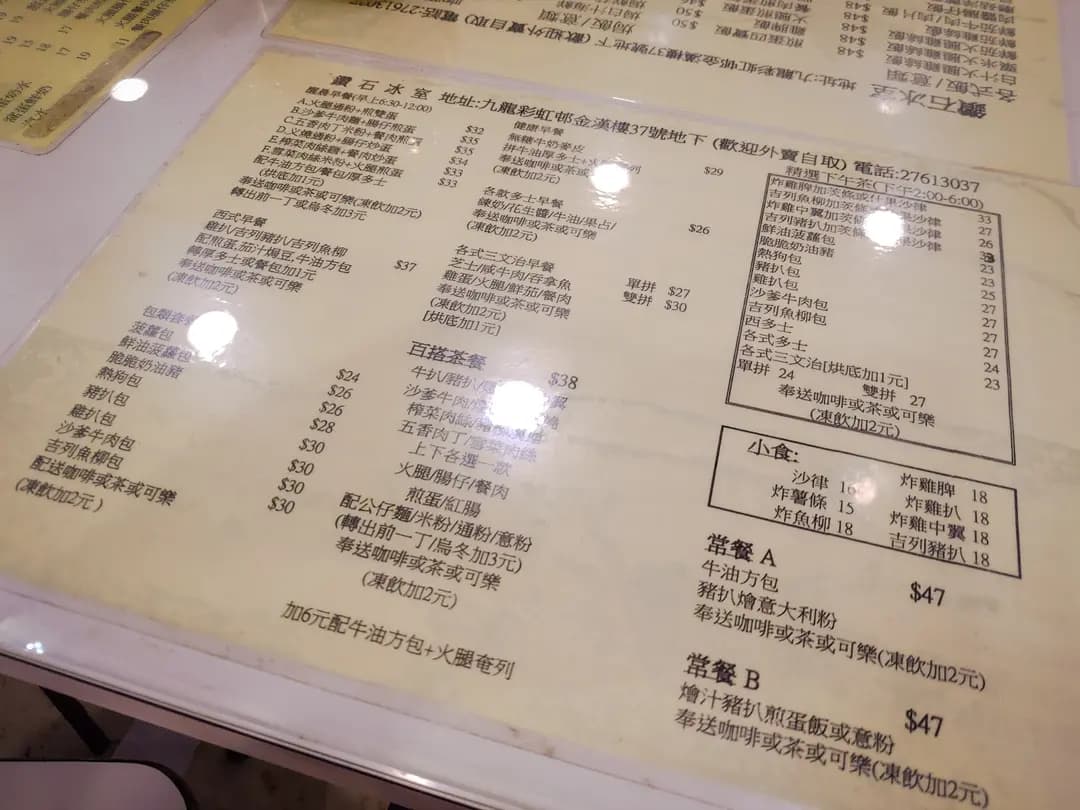 鑽石冰室 地址:九龍彩虹邨金漢樓37號地下 (歡迎外賣自取) 電話:27613037
晨早餐(早上6:30-12:00)
A.火腿通粉+煎雙蛋 $32
B.沙爹牛肉麵+腸仔煎蛋 $35
C.五香肉丁米粉+餐肉煎 $35
D.义燒通粉+腸仔炒蛋 $34
E.榨菜肉絲麵+餐肉炒蛋 $33
F.雪菜肉絲米粉+火腿煎蛋 $33
配牛油方包/餐包/厚多士
(烘底加1元)
奉送咖啡或茶或可樂(凍飲加2元)
轉出前一丁或烏冬加3元
西式早餐
雞扒/吉列豬扒/吉列魚柳
配煎蛋,茄汁焗豆,牛油方包 $37
轉厚多士或餐包加1元
奉送咖啡或茶或可樂
(凍飲加2元)
包類
菠蘿包 $24
鮮油菠蘿包 $26
脆脆奶油豬 $26
熱狗包 $28
豬扒包 $30
雞扒包 $30
沙爹牛肉包 $30
吉列魚柳包 $30
配送咖啡或茶或可樂
(凍飲加2元)
健康早餐
無糖牛奶麥皮
拼牛油厚多士+火 $29
奉送咖啡或茶 可
(凍飲加2元)
各款多士早餐
鍊奶/花生醬/牛油/果占/ $26
奉送咖啡或茶或可樂
(凍飲加2元)
各式三文治早餐
芝士/咸牛肉/吞拿魚 單拼 $27
雞蛋/火腿/鮮茄/餐肉 雙拼 $30
奉送咖啡或茶或可樂
(凍飲加2元)
[烘底加1元]
百搭茶餐 $38
牛扒/豬扒/ 翼
沙爹牛肉/
榨菜肉絲/
五香肉丁/雪菜肉絲
上下各選一款
火腿/腸仔/餐肉
煎蛋/紅腸
配公仔麵/米粉/通粉/意粉
(轉出前一丁/烏冬加3元)
奉送咖啡或茶或可樂
(凍飲加2元)
加6元配牛油方包+火腿奄列
精選下午茶(下午2:00-6:00)
炸雞脾加茨條或什果沙律 33
吉列魚柳加茨條 果沙律 27
炸雞中翼加茨條 果沙律 26
吉列豬扒加茨 果沙律
鮮油菠蘿包 23
脆脆奶油豬 23
熱狗包 25
豬扒包 27
雞扒包 27
沙爹牛肉包 27
吉列魚柳包 27
西多士 24
各式多士 23
各式三文治[烘底加1元]
單拼 24 雙拼 27
奉送咖啡或茶或可樂
(凍飲加2元)
小食:
沙律 16 炸雞脾 18
炸薯條 15 炸雞扒 18
炸魚柳 18 炸雞中翼 18
吉列豬扒 18
常餐 A $47
牛油方包
豬扒燴意大利粉
奉送咖啡或茶或可樂(凍飲加2元)
常餐 B $47
燴汁豬扒煎蛋飯或意粉
奉送咖啡或茶或可樂(凍飲加2元)